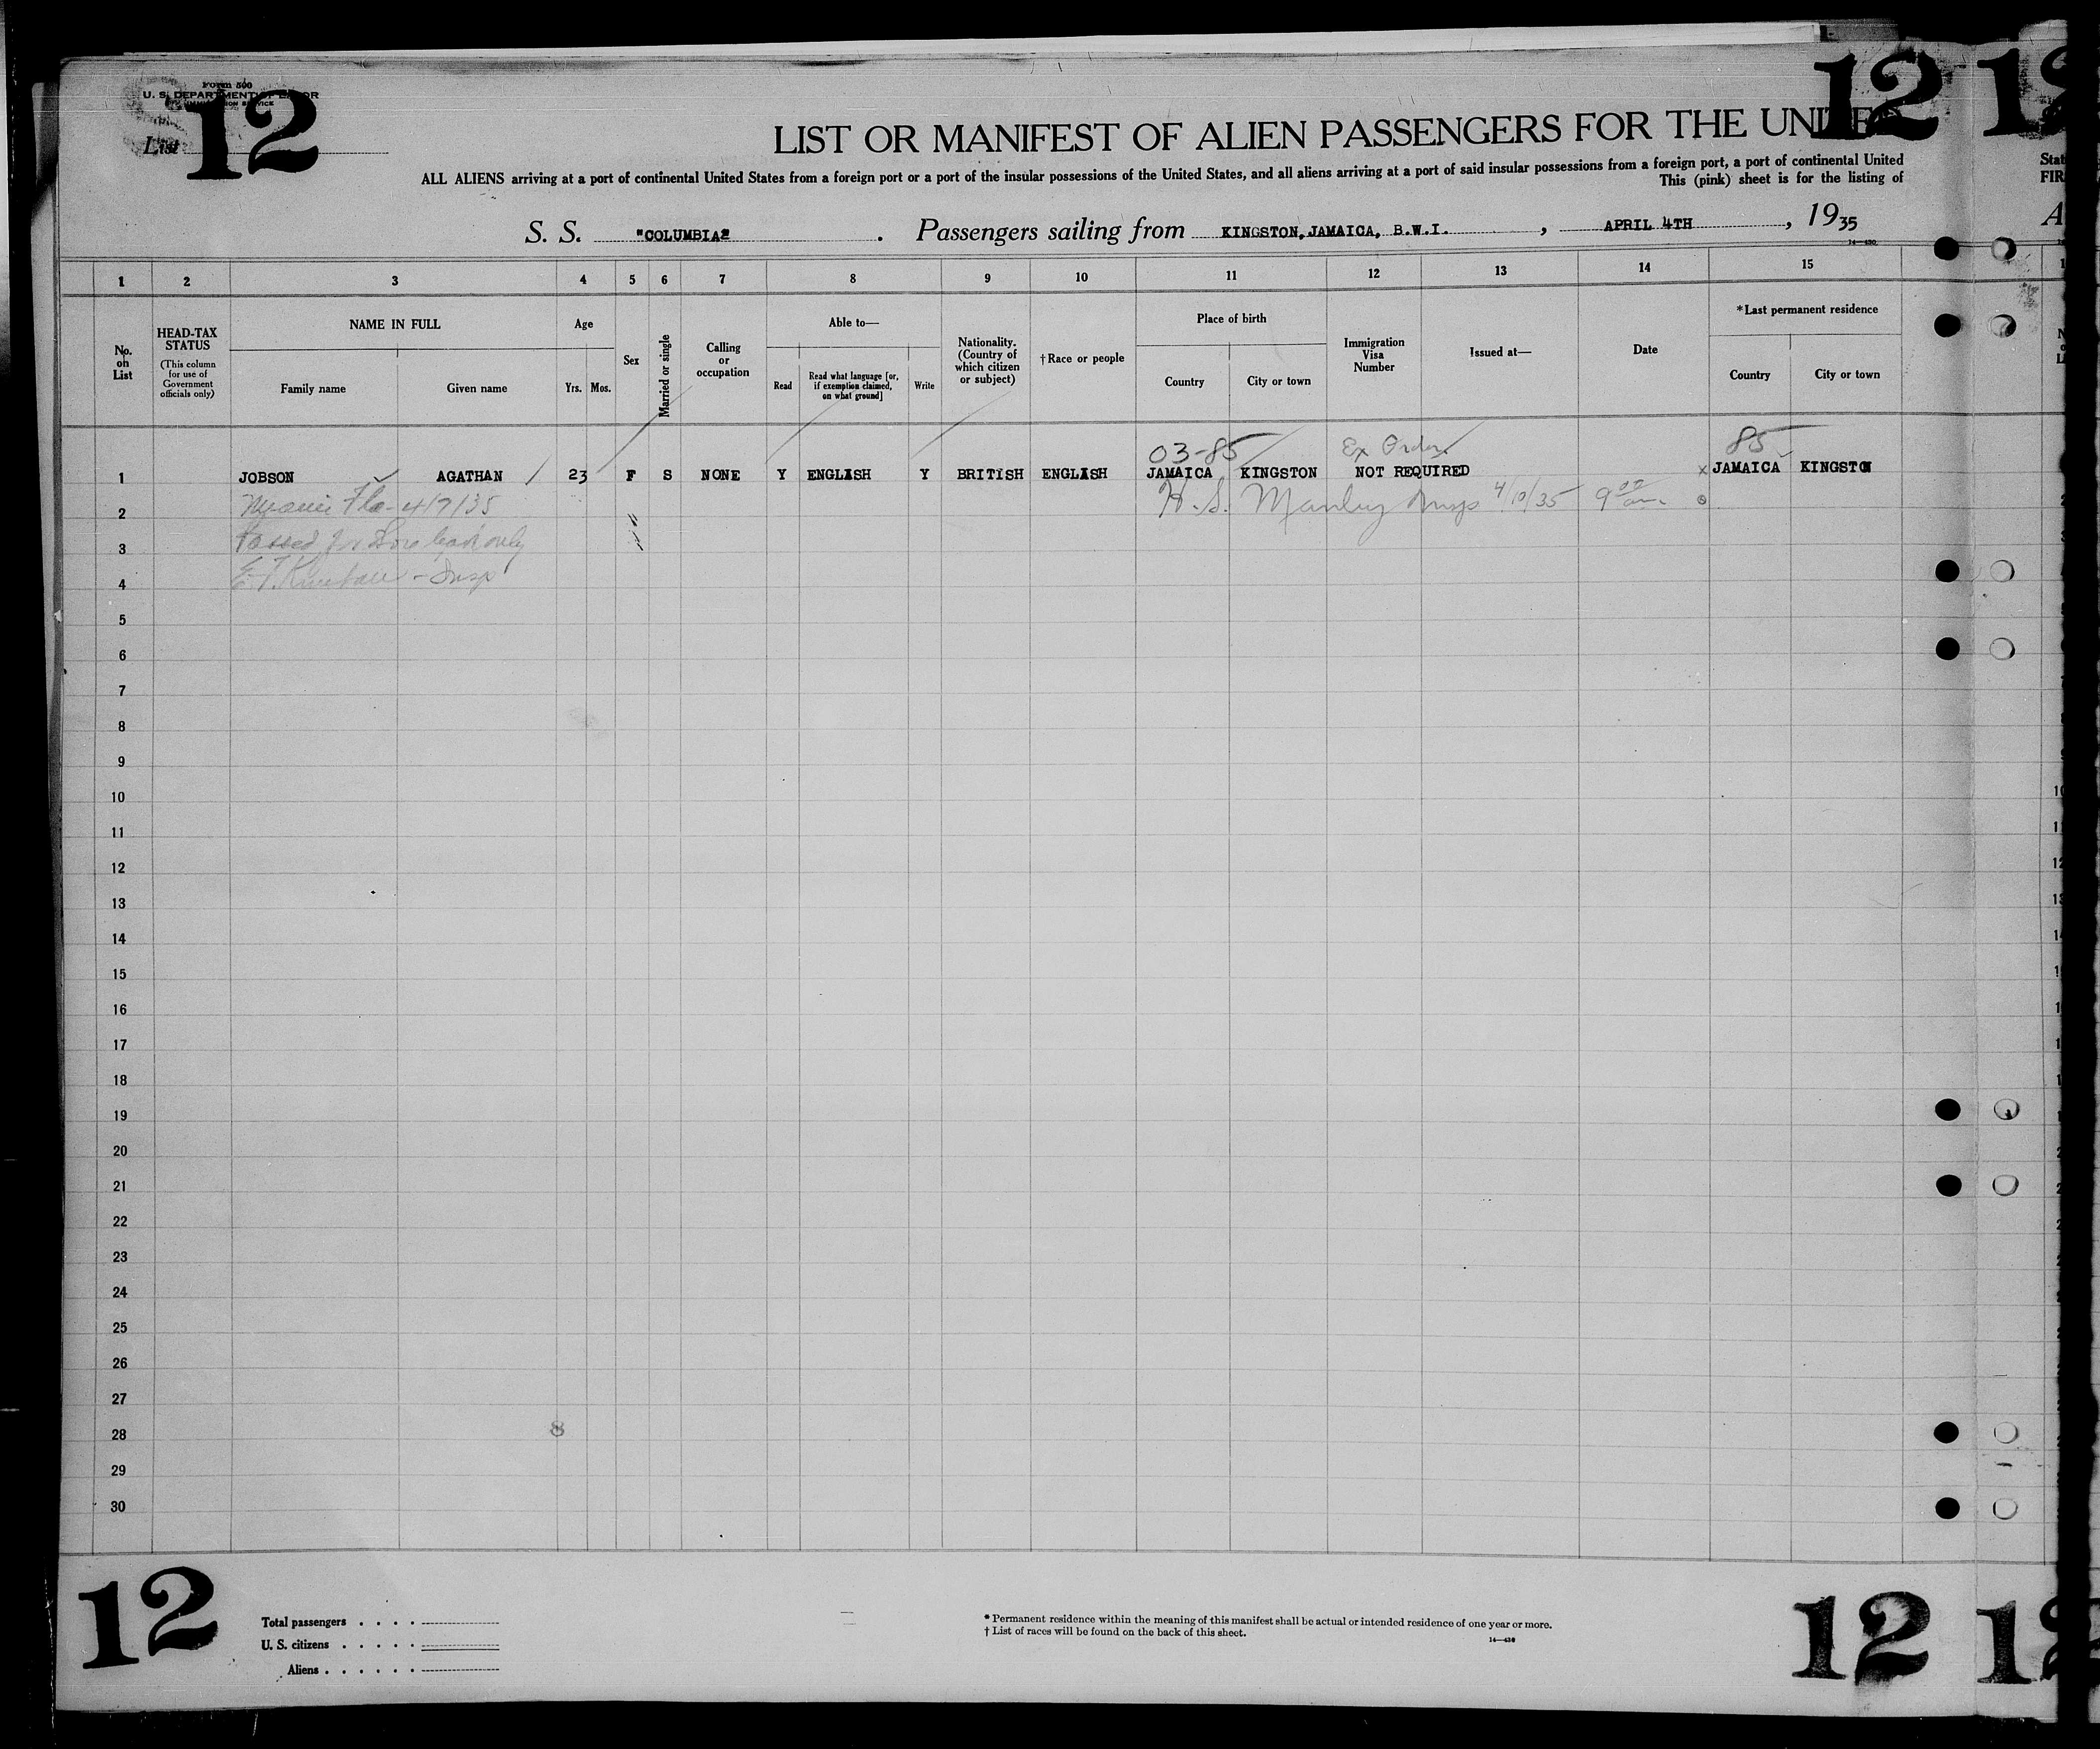 Form 500
U. S. DEPARTMENT OF LABOR
IMMIGRATION SERVICE
List 12
12
12
LIST OR MANIFEST OF ALIEN PASSENGERS FOR THE UNITED
ALL ALIENS arriving at a port of continental United States from a foreign port or a port of the insular possessions of the United States, and all aliens arriving at a port of said insular possessions from a foreign port, a port of continental United
This (pink) sheet is for the listing of
Stat
FIR
S. S. "COLUMBIA" . Passengers sailing from KINGSTON, JAMAICA, B.W.I. , APRIL 4TH , 1935
A
14—430
1 2 3 4 5 6 7 8 9 10 11 12 13 14 15
No. on List
HEAD-TAX STATUS
(This column for use of Government officials only)
NAME IN FULL
Family name Given name
Age
Yrs. Mos.
Sex
Married or single
Calling or occupation
Able to—
Read
Read what language [or, if exemption claimed, on what ground]
Write
Nationality. (Country of which citizen or subject)
†Race or people
Place of birth
Country City or town
Immigration Visa Number
Issued at—
Date
*Last permanent residence
Country City or town
03-85 Ex Order 85
1 JOBSON AGATHAN 23 F S NONE Y ENGLISH Y BRITISH ENGLISH JAMAICA KINGSTON NOT REQUIRED x JAMAICA KINGSTON
2 Miami Fla - 4/7/35 H. S. Manley Insp 4/10/35 9 00 am
3 Passed for only
4 E. T. - Insp
5
6
7
8
9
10
11
12
13
14
15
16
17
18
19
20
21
22
23
24
25
26
27
28 8
29
30
12
12
12
Total passengers . . . .
U. S. citizens . . . . .
Aliens . . . . . .
* Permanent residence within the meaning of this manifest shall be actual or intended residence of one year or more.
† List of races will be found on the back of this sheet.
14—430